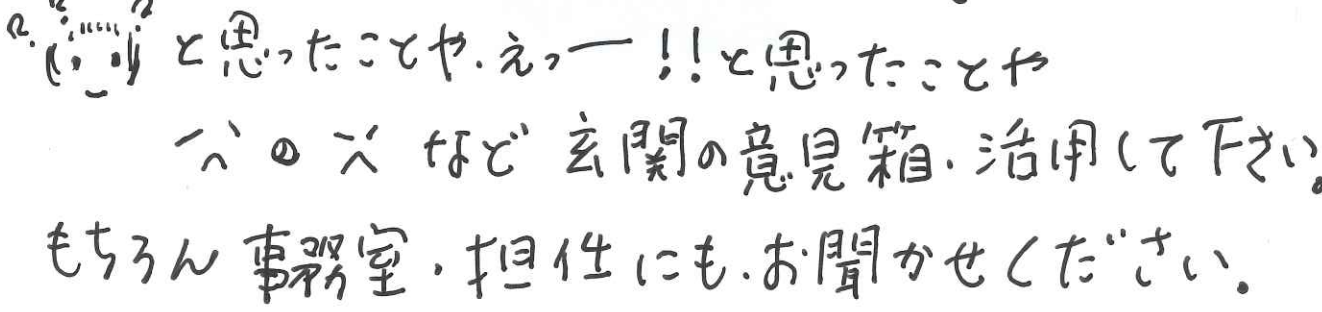 ??と思ったことや、えっー!!と思ったことや
など玄関の意見箱、活用して下さい。
もちろん事務室、担任にも、お聞かせください。